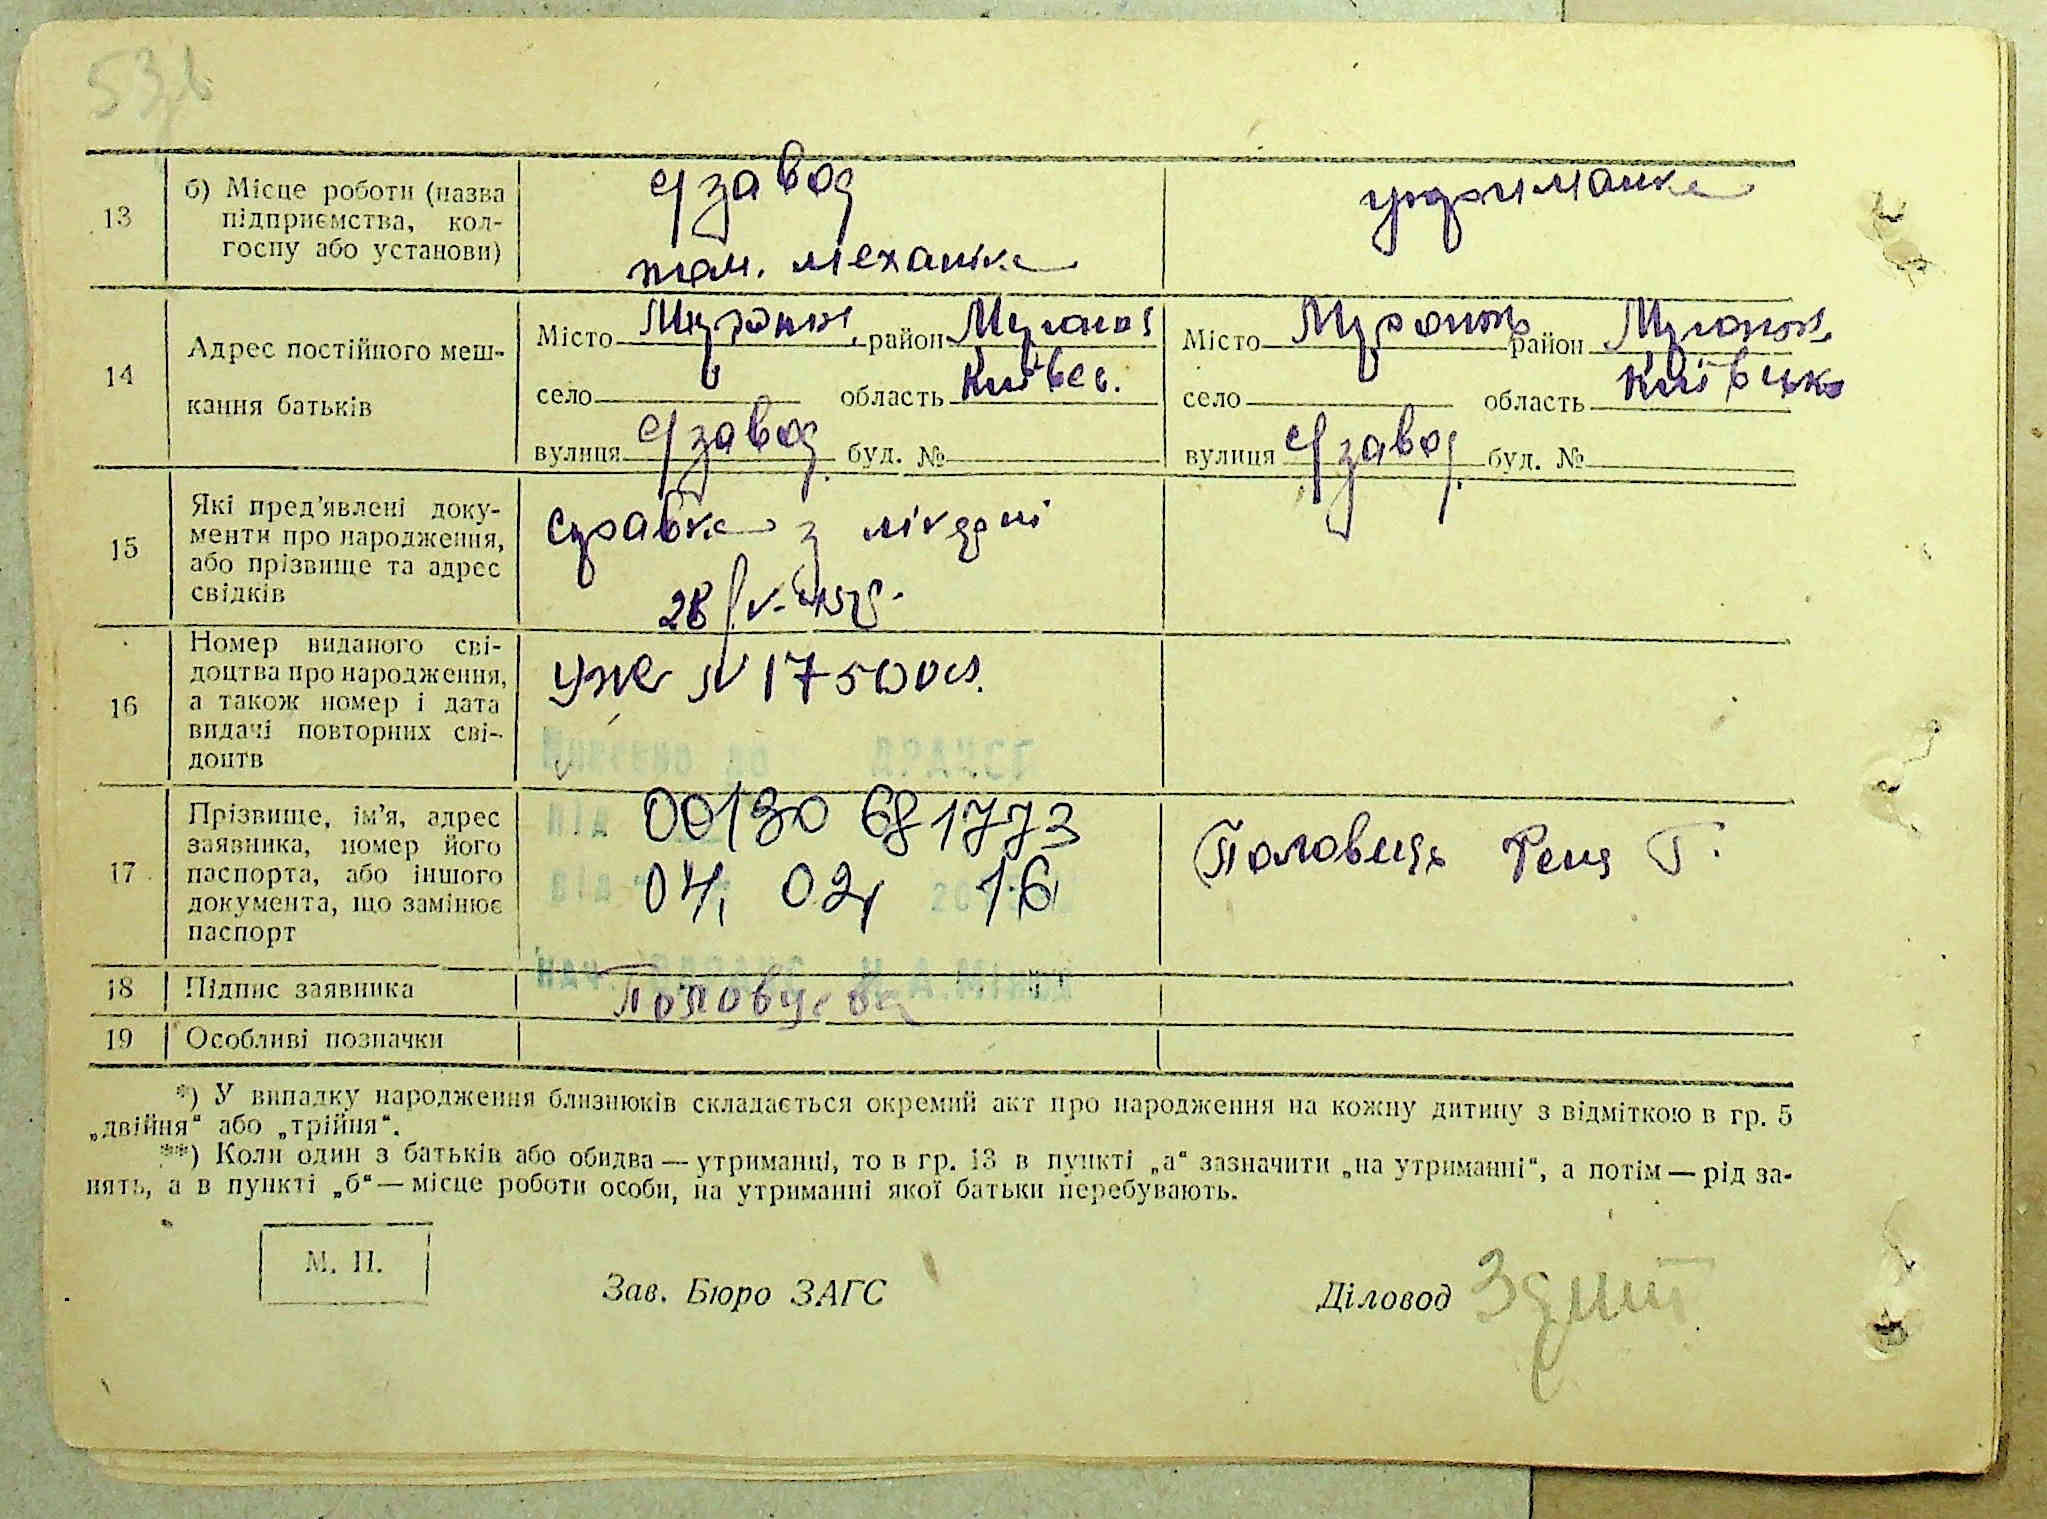 13
б) Місце роботи (назва
підприємства, кол-
госпу або установи)
с/завод
пом. механіка
утриманка
14
Адрес постійного меш-
кання батьків
Місто Миронів. район Миронів
село область Київсь.
вулиця с/завод. буд. №
Місто Миронів район Миронів.
село область Київсько
вулиця с/завод. буд. №
15
Які пред'явлені доку-
менти про народження,
або прізвище та адрес
свідків
справка з лікарні
16
Номер виданого сві-
доцтва про народження,
а також номер і дата
видачі повторних сві-
доцтв
№
Внесено до ДРАЦСГ
17
Прізвище, ім'я, адрес
заявника, номер його
паспорта, або іншого
документа, що замінює
паспорт
під 00130681773
від 04. 02. 2016
Половець Г.
18
Підпис заявника
19
Особливі позначки
*) У випадку народження близнюків складається окремий акт про народження на кожну дитину з відміткою в гр. 5
„двійня“ або „трійня“.
**) Коли один з батьків або обидва — утриманці, то в гр. 13 в пункті „а“ зазначити „на утриманні“, а потім — рід за-
нять, а в пункті „б“ — місце роботи особи, на утриманні якої батьки перебувають.
М. П.
Зав. Бюро ЗАГС
Діловод